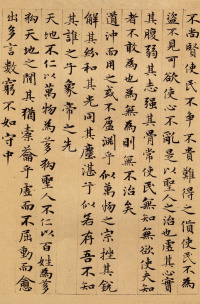 不尚賢使民不爭不貴難得之貨使民不為
盜不見可欲使心不亂是以聖人之治也虛其心實
其腹弱其志强其骨常使民無知無欲使夫知
者不敢為也為無為則無不治矣
道沖而用之或不盈淵乎似萬物之宗挫其銳
解其紛和其光同其塵湛兮似若存吾不知
其誰之子象帝之先
天地不仁以萬物為芻狗聖人不仁以百姓為芻
狗天地之間其猶橐籥乎虛而不屈動而愈
出多言數窮不如守中